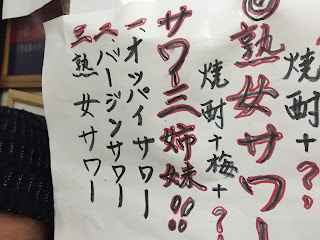 焼酎+?
◎熟女サワー
焼酎+梅+?
サワー三姉妹!!
一、オッパイサワー
二、バージンサワー
三、熟女サワー